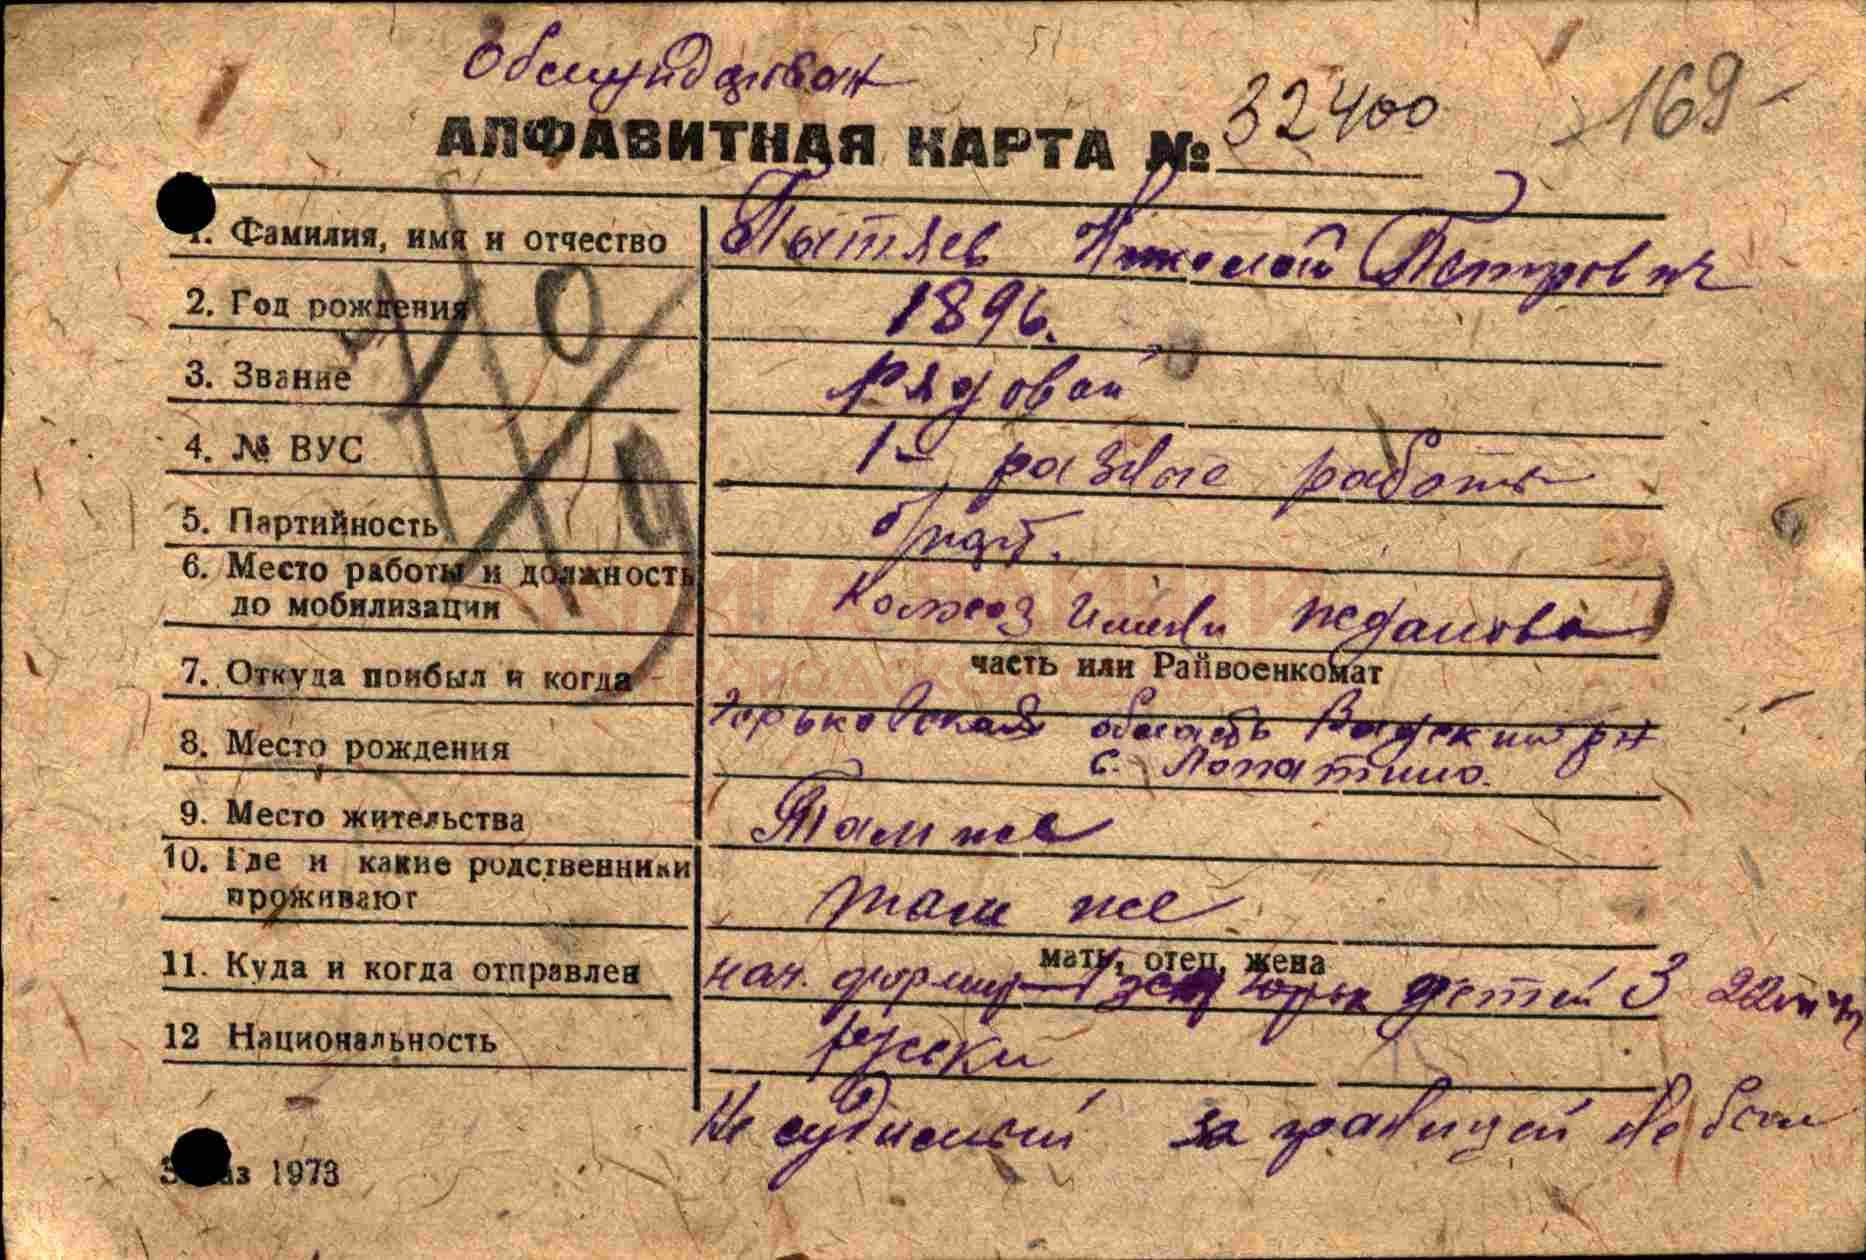 Обмундирован
169
АЛФАВИТНАЯ КАРТА № 32400
1. Фамилия, имя и отчество Пытяев Николай Петрович
2. Год рождения 1896.
3. Звание рядовой
4. № ВУС 1 - разные работы
5. Партийность б/парт.
6. Место работы и должность до мобилизации Колхоз имени Жданова
7. Откуда прибыл и когда
часть или Райвоенкомат
8. Место рождения Горьковская область Вадский рн
с. Лопатино.
9. Место жительства Там же
10. Где и какие родственники проживают там же
мать, отец, жена
11. Куда и когда отправлен детей 3
12 Национальность руски
Не судимый за границей не был
Заказ 1973